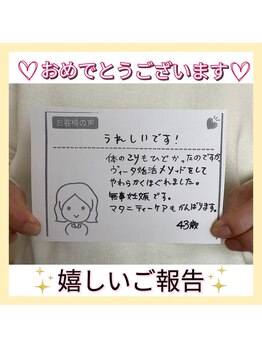 ♡おめでとうございます♡
お客様の声
うれしいです！
体のコリもひどかったのですが、
ヴィータ妊活メソッドをして
やわらかくほぐれました。
無事妊娠です。
マタニティーケアもがんばります。
43歳
✨嬉しいご報告✨